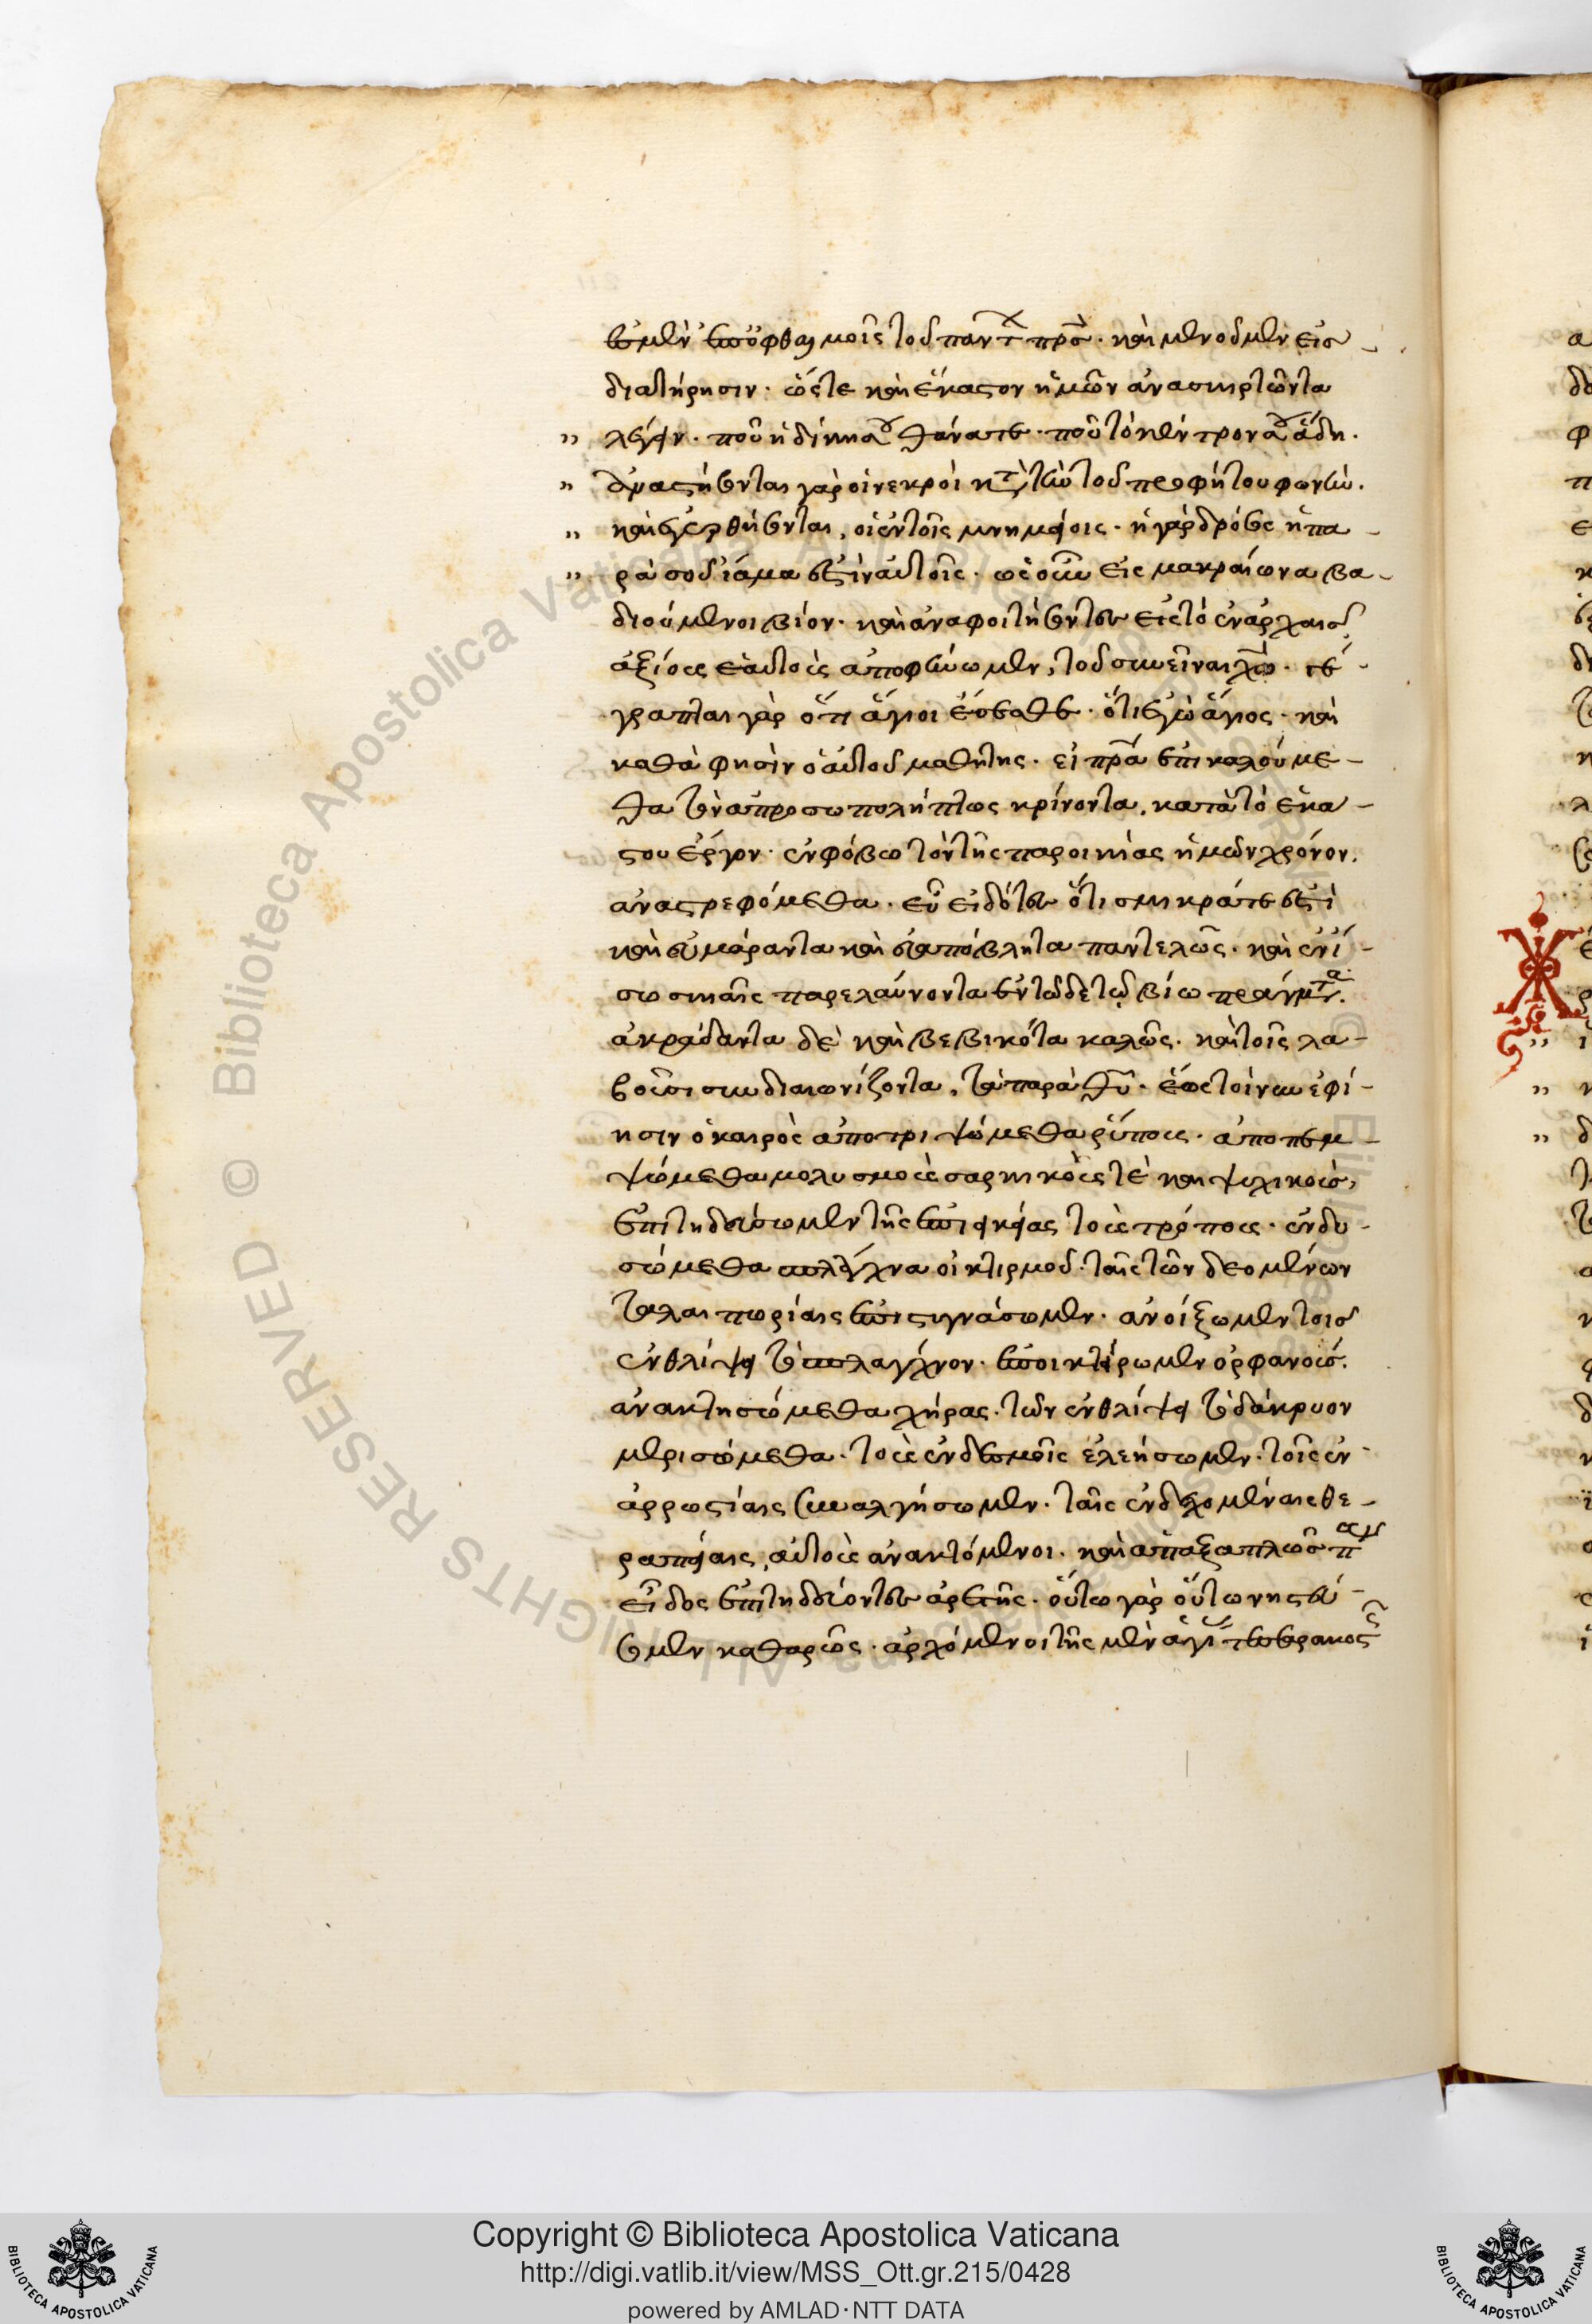 διατήρησιν· ὥστε καὶ ἕκαστον ἡμῶν ἀνασκιρτῶντα
λέγειν· ποῦ ἡ δίκη σου θάνατε· ποῦ τὸ κέντρον σου ἅδη·
ἀναστήσονται γὰρ οἱ νεκροὶ κατὰ τὴν τοῦ προφήτου φωνήν·
καὶ ἐγερθήσονται, οἱ ἐν τοῖς μνημείοις· ἡ γὰρ δρόσος ἡ πα-
ρὰ σοῦ ἴαμα ἐστὶν αὐτοῖς· ὡς οὖν εἰς μακραίωνα βα-
διούμενοι βίον· καὶ ἀναφοιτήσοντες εἰς τὸ ἐν ἀρχαῖς
ἀξίους ἑαυτοὺς ἀποφήνωμεν, τοῦ συνεῖναι χῷ· γέ-
γραπται γὰρ ὅτι ἅγιοι ἔσεσθε· ὅτι ἐγὼ ἅγιος· καὶ
καθά φησιν ὁ αὐτοῦ μαθητής· εἰ πρα ἐπικαλούμε-
θα τὸν ἀπροσωπολήπτως κρίνοντα, κατὰ τὸ ἑκά-
στου ἔργον· ἐν φόβω τὸν τῆς παροικίας ἡμῶν χρόνον,
ἀναστρεφόμεθα· εὖ εἰδότες ὅτι σμικρά τέ ἐστι
καὶ εὐμάραντα καὶ εὐαπόβλητα παντελῶς· καὶ ἐν ἴ-
σω σκιαῖς παρελαύνοντα ἐν τῷδε τῷ βίω πράγματα·
ἀκράδαντα δὲ καὶ βεβικότα καλῶς· καὶ τοῖς λα-
βοῦσι συνδιαιωνίζοντα, τὰ παρὰ θυ· ἕως τοίνυν ἐφί-
ησιν ὁ καιρὸς ἀποτριψώμεθα ῥύπους· ἀποπεμ-
ψώμεθα μολυσμοὺς σαρκικούς τὲ καὶ ψυχικούς,
ἐπιτηδεύσωμεν τῆς ἐπιεικείας τοὺς τρόπους· ἐνδυ-
σώμεθα σπλάγχνα οἰκτιρμοῦ· ταῖς τῶν δεομένων
ταλαιπωρίαις ἐπιστυγνάσωμεν· ἀνοίξωμεν τοῖς
ἐν θλίψει τὸ σπλάγχνον· ἐποικτείρωμεν ὀρφανούς·
ἀνακτησώμεθα χήρας· τῶν ἐν θλίψει τὸ δάκρυον
μερισώμεθα· τοὺς ἐν δεσμοῖς ἐλεήσωμεν· τοῖς ἐν
ἀρρωστίαις συναλγήσωμεν· ταῖς ἐνδεχομέναις θε-
ραπείαις, αὐτοὺς ἀνακτόμενοι· καὶ ἁπαξαπλῶς πᾶν
εἶδος ἐπιτηδεύοντες ἀρετῆς· οὕτω γὰρ οὕτω νηστεύ-
σομεν καθαρῶς· ἀρχόμενοι τῆς μὲν ἁγί τεσσρακος